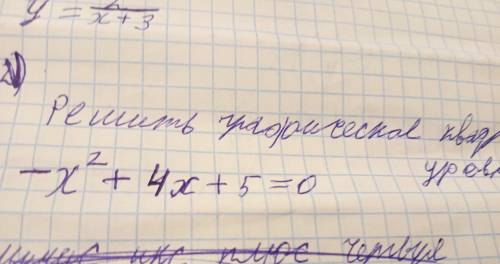 y = 2/x+3
2)
Решить графическое квадр
уравн
-x² + 4x + 5 = 0
минус икс плюс четвуя